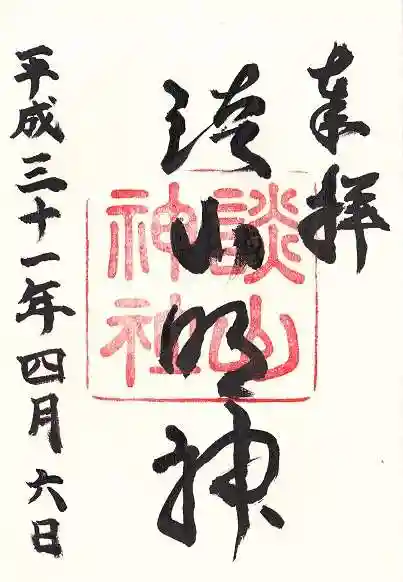 奉拝
談山明神
談山神社
平成三十一年四月六日